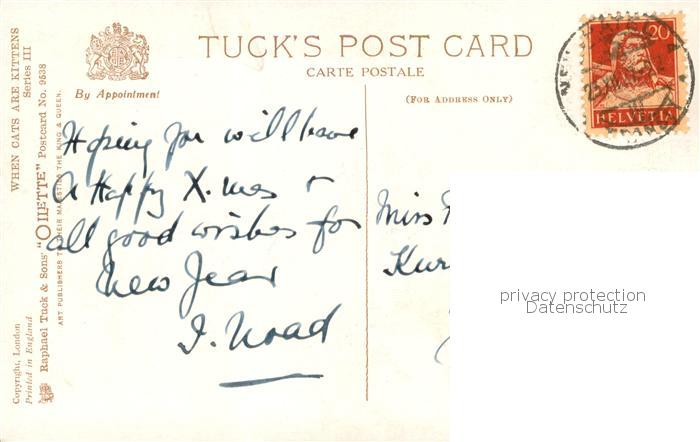 WHEN CATS ARE KITTENS
Series III
Raphael Tuck & Sons' "OILETTE" Postcard No. 9538
ART PUBLISHERS TO THEIR MAJESTIES THE KING & QUEEN.
Copyright, London
Printed in England
By Appointment
TUCK'S POST CARD
CARTE POSTALE
(FOR ADDRESS ONLY)
20
HELVETIA
Hoping you will have
A Happy X.mas +
all good wishes for
New Year
I. Noad
Miss
Kur
privacy protection
Datenschutz